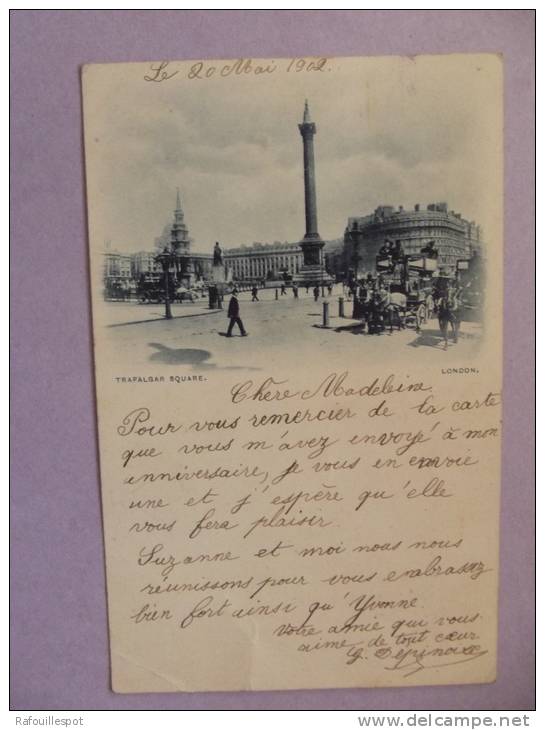 Le 20 Mai 1902.
TRAFALGAR SQUARE.
LONDON.
Chère Madeleine
Pour vous remercier de la carte
que vous m'avez envoyé à mon
anniversaire, je vous en envoie
une et j'espère qu'elle
vous fera plaisir.
Suzanne et moi nous nous
réunissons pour vous embrassez
bien fort ainsi qu'Yvonne
Votre amie qui vous
aime de tout cœur
G.
Rafouillespot
© delcampe.net